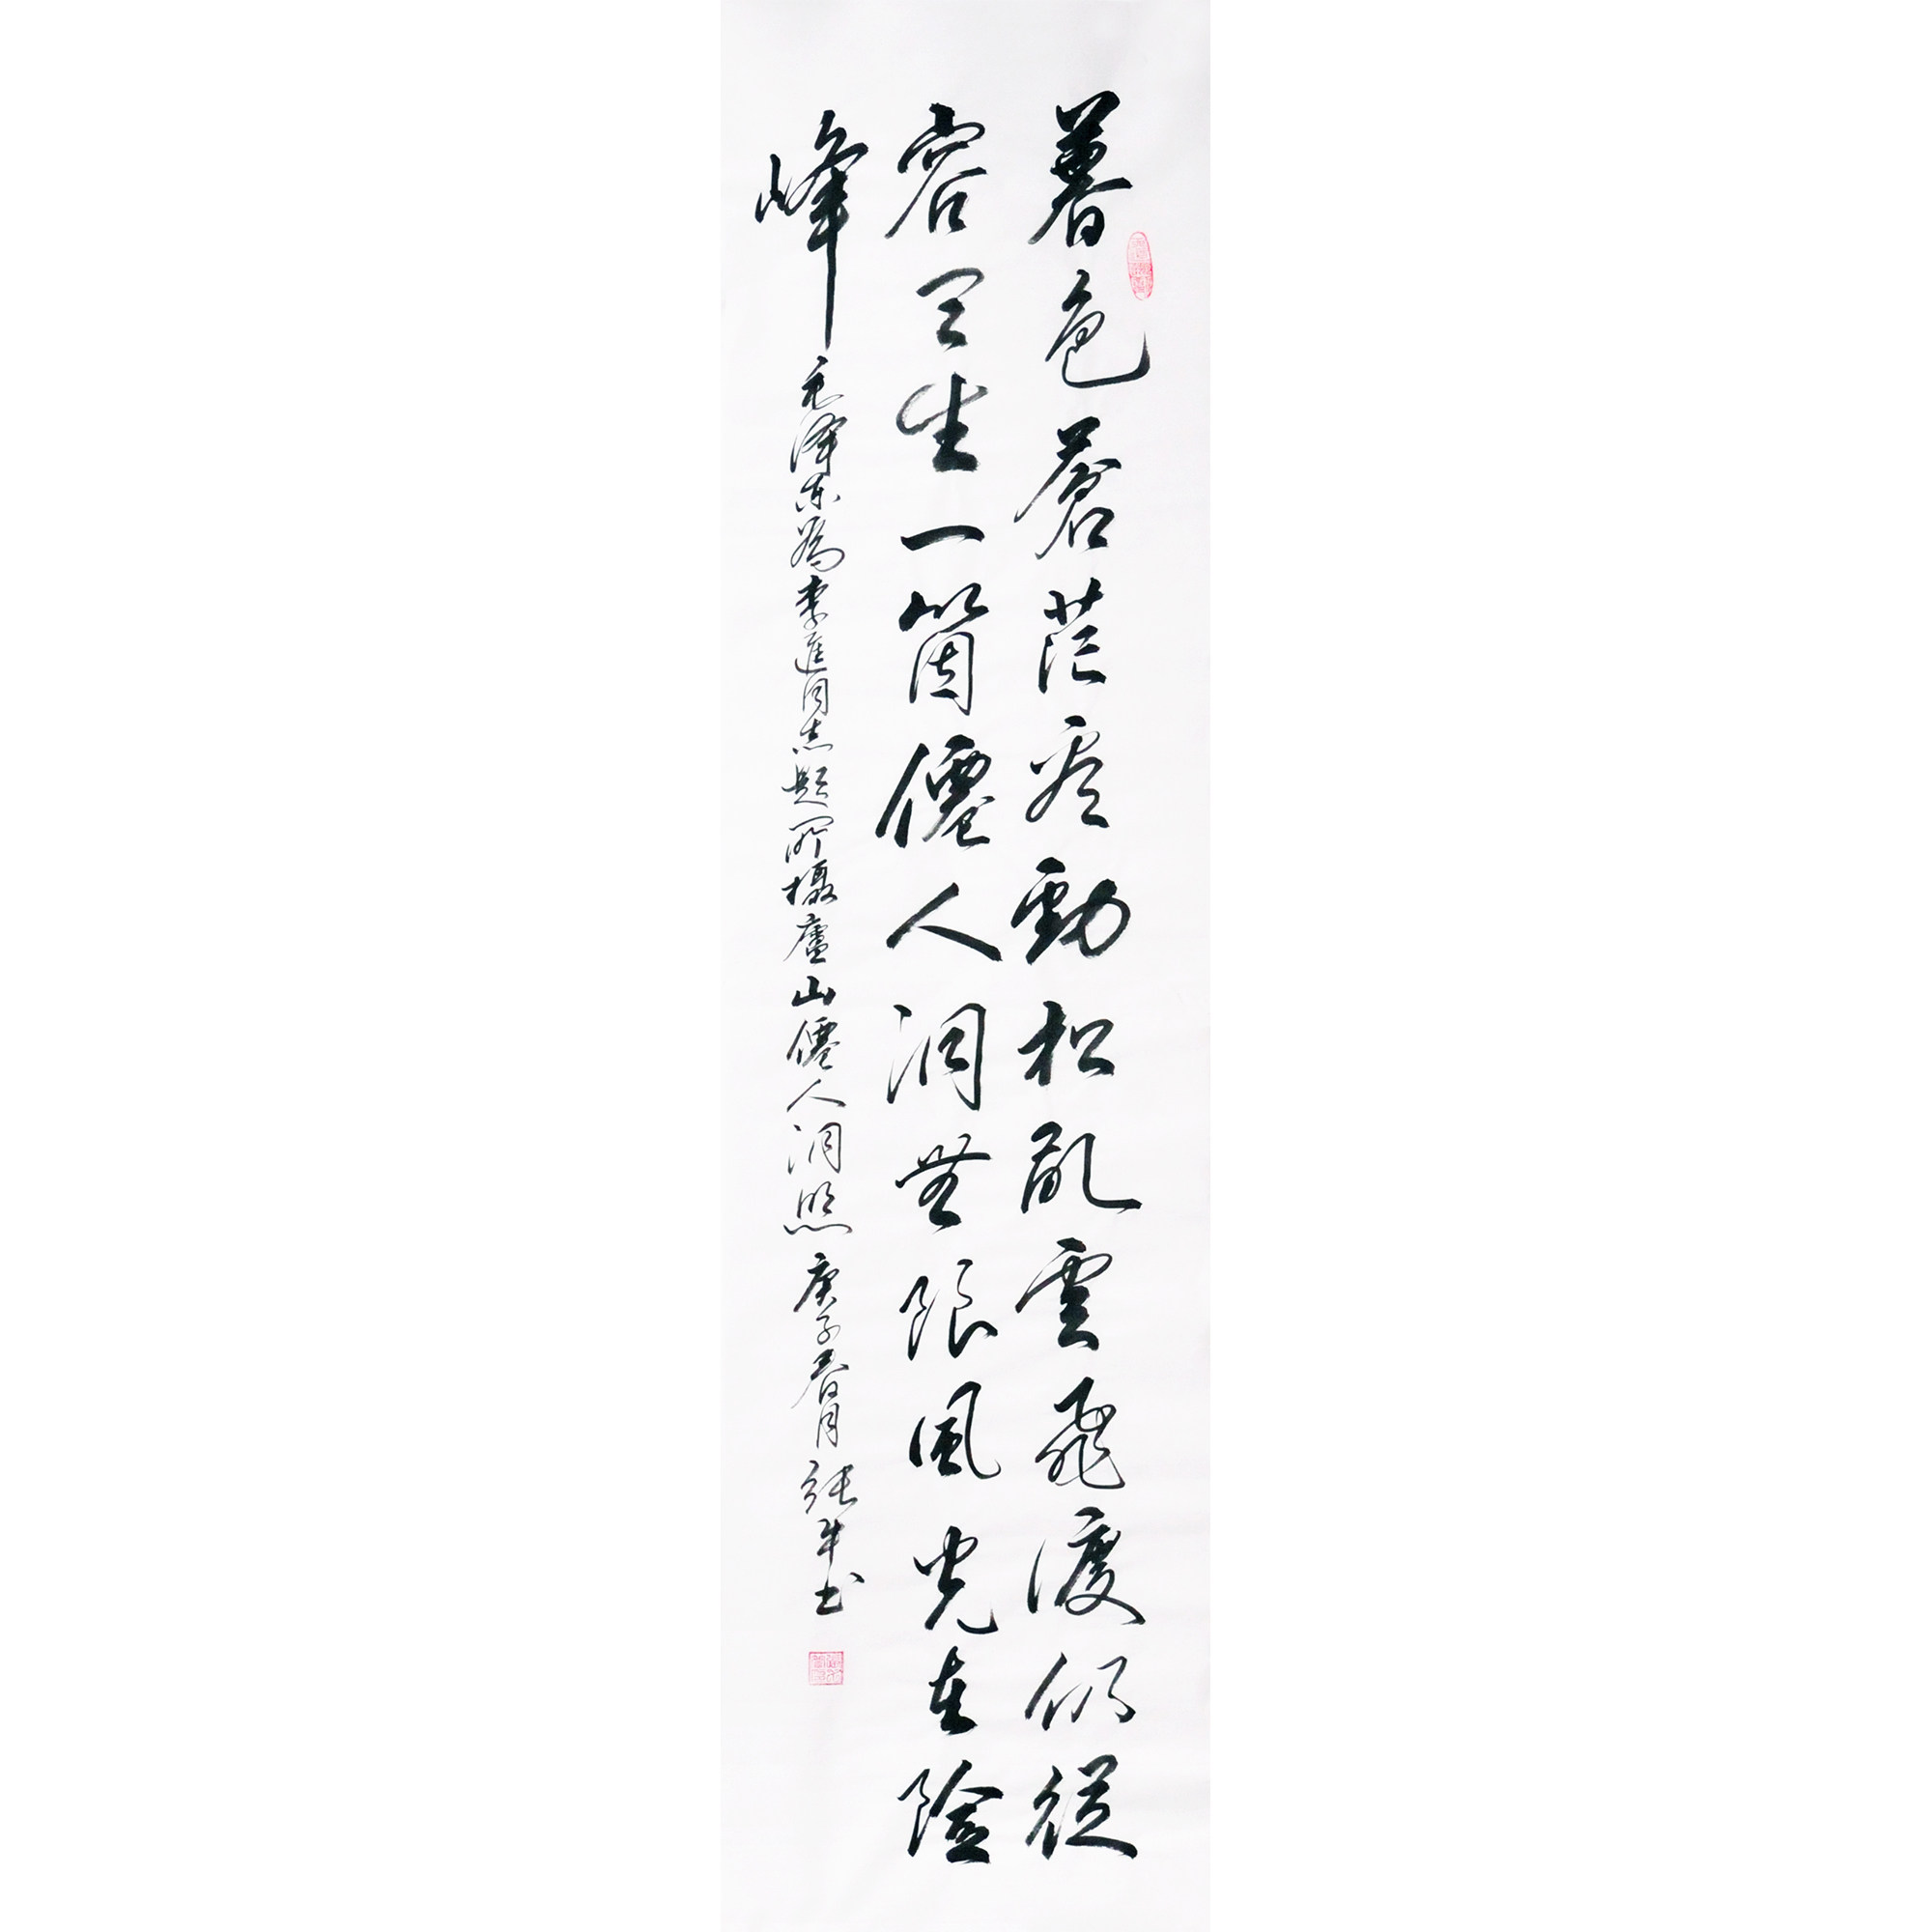 暮色蒼茫看勁松亂雲飛渡仍從
容天生一箇僊人洞無限風光在險
峰 毛澤東為李進同志題所攝廬山僊人洞照 庚子春月 張 書